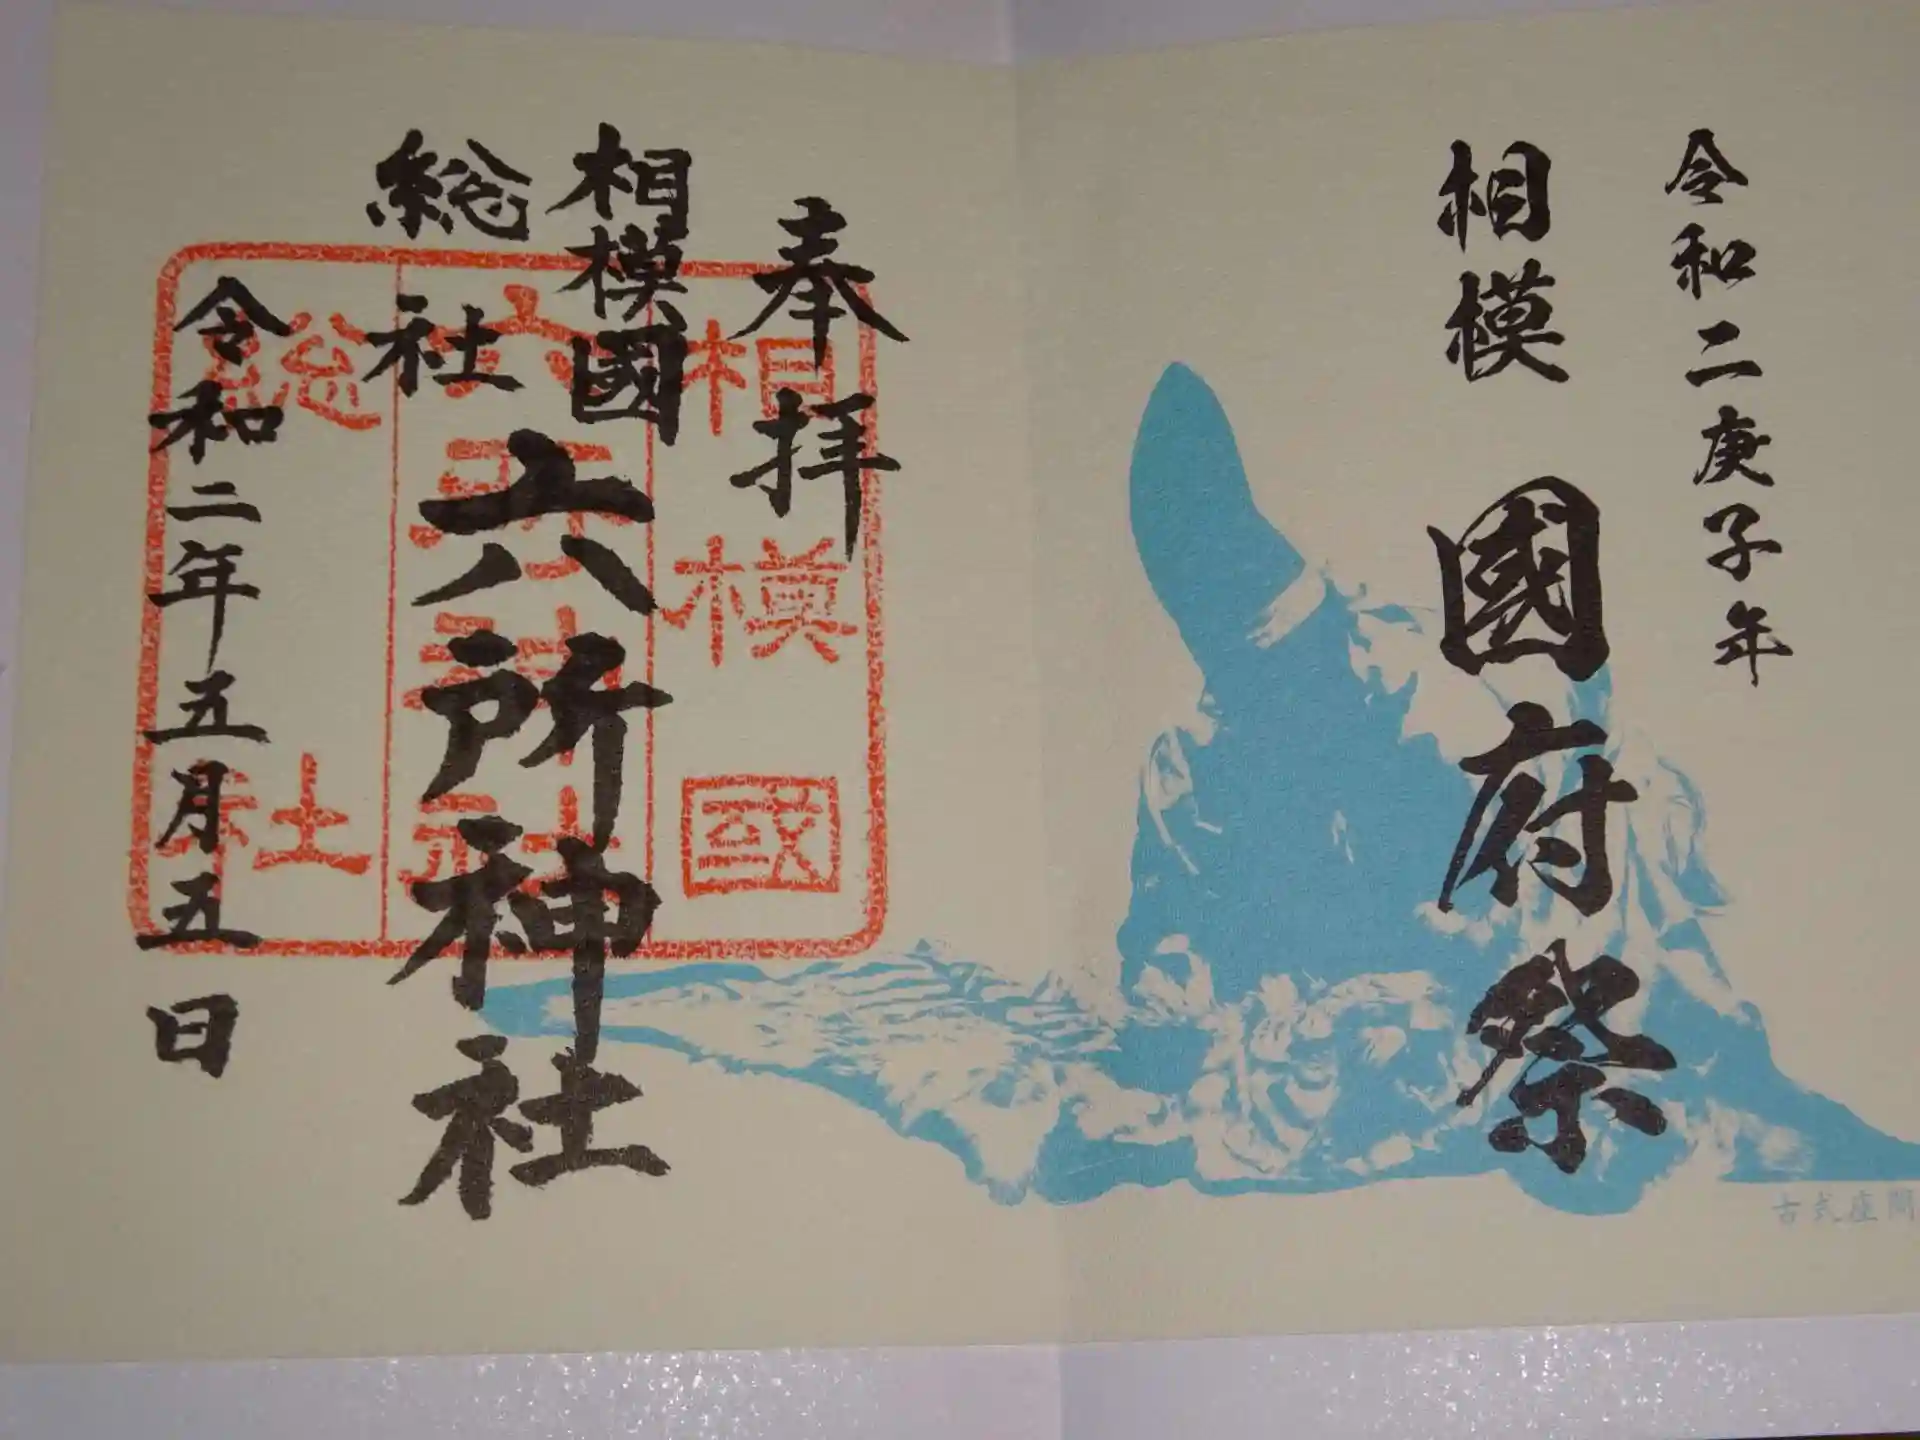 令和二庚子年
相模 國府祭
古式座問
奉拝
相模國
総社
六所神社
令和二年五月五日
相模國
六所神社
総社